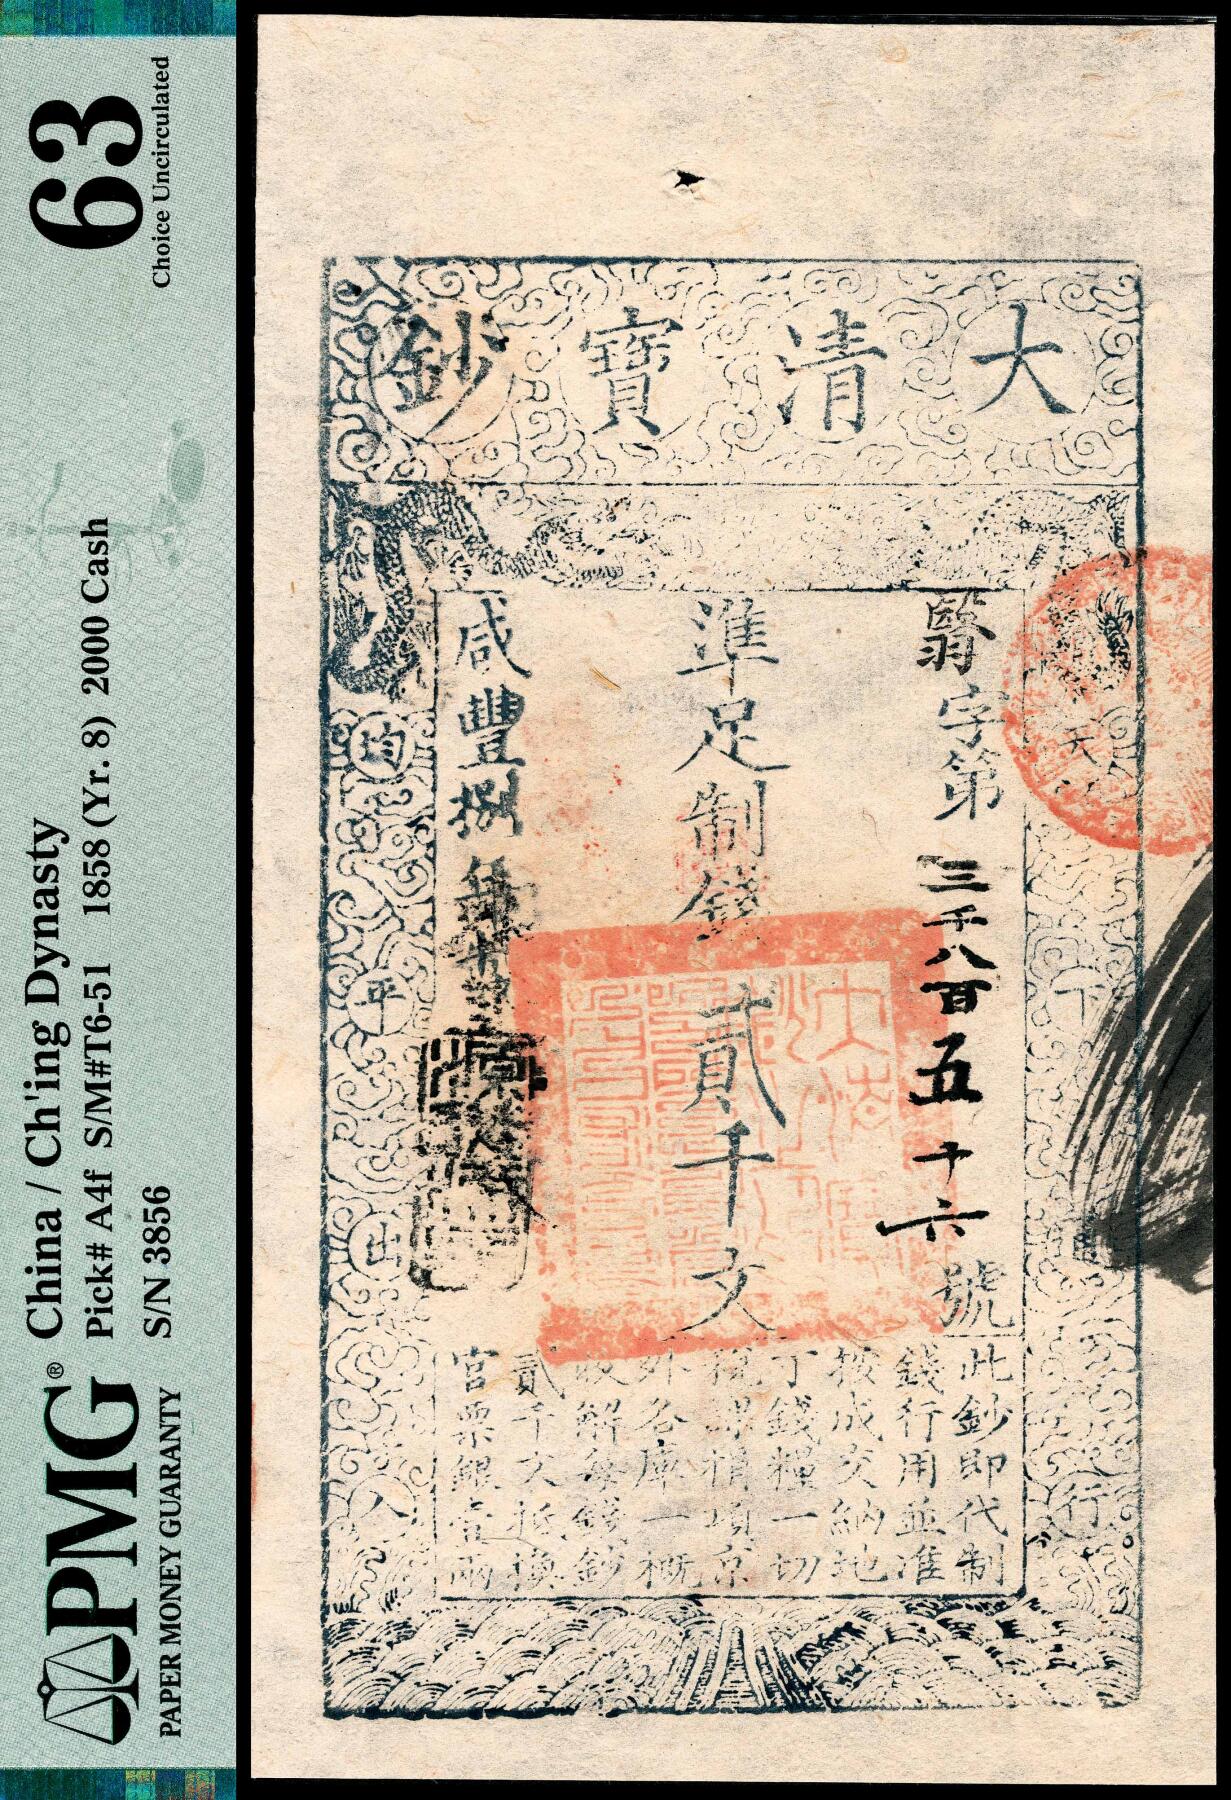 PMG®
PAPER MONEY GUARANTY
China / Ch'ing Dynasty
Pick# A4f S/M#T6-51 1858 (Yr. 8) 2000 Cash
S/N 3856
63
Choice Uncirculated
大清寶鈔
字第三千八百五十六號
準足制錢貳千文
咸豐捌年
天下
行
均平
此鈔即代制
錢行用並准
按成交納地
丁錢糧一切
稅課捐項京
外各庫一概
收解每錢鈔
貳千文抵換
官票銀壹兩